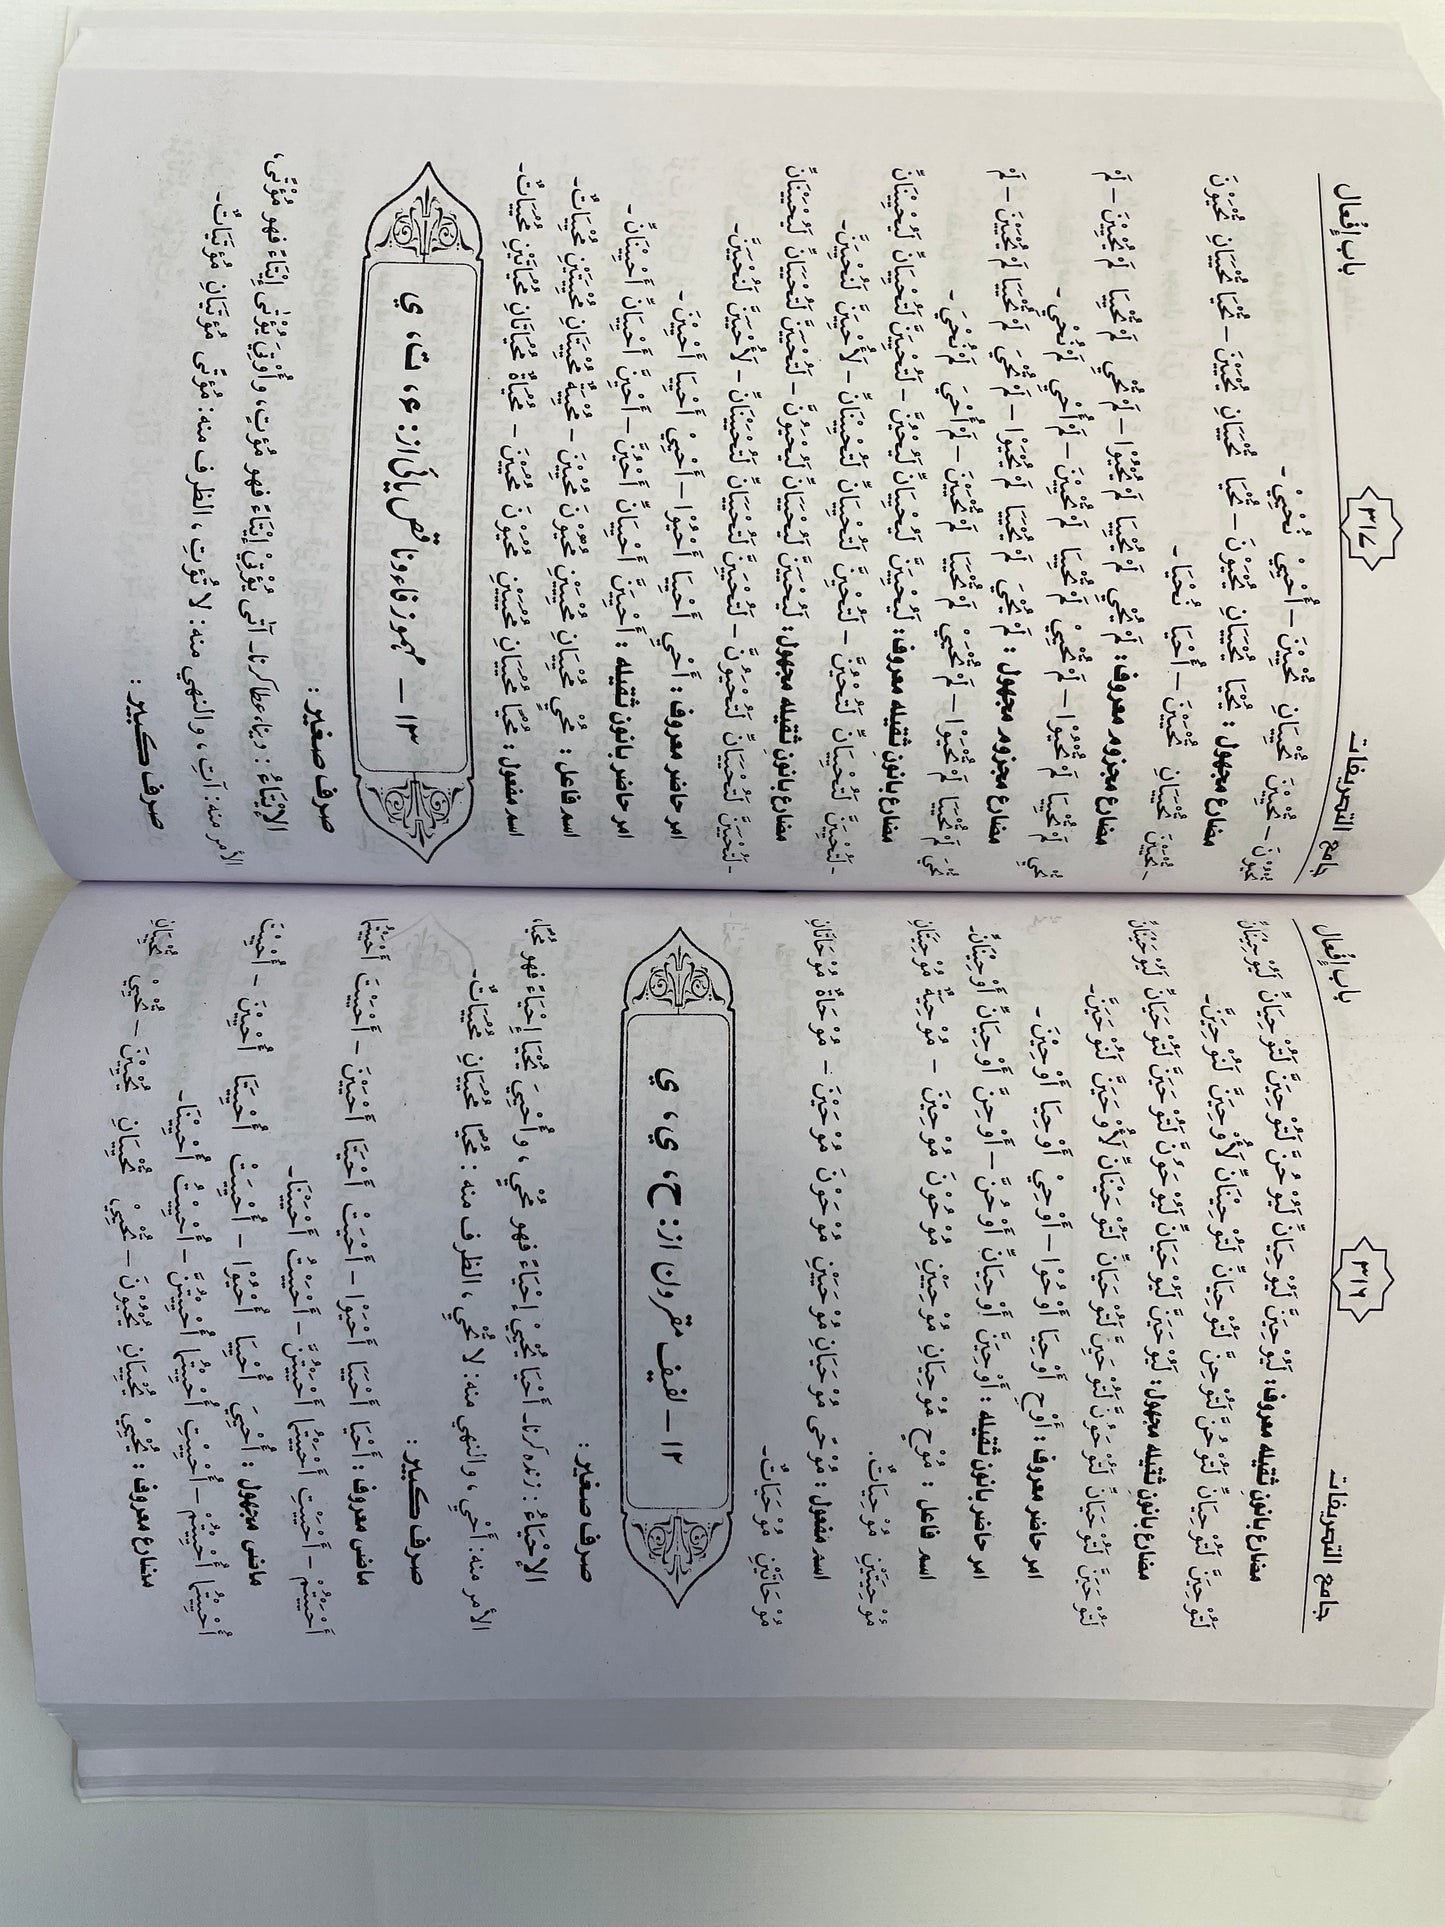 جامع التصريفات ٣١٦ باب إفعال
مضارع بانون ثقيله معروف: لَيُوْحِيَنَّ لَيُوْحِيَانِّ لَيُوْحُنَّ لَتُوْحِيَنَّ لَتُوْحِيَانِّ لَيُوْحِيْنَانِّ
لَتُوْحِيَنَّ لَتُوْحِيَانِّ لَتُوْحُنَّ لَتُوْحِنَّ لَتُوْحِيَانِّ لَتُوْحِيْنَانِّ لَأُوْحِيَنَّ لَنُوْحِيَنَّ۔
مضارع بانون ثقيله مجهول: لَيُوْحَيَنَّ لَيُوْحَيَانِّ لَيُوْحَوُنَّ لَتُوْحَيَنَّ لَتُوْحَيَانِّ لَيُوْحَيْنَانِّ
لَتُوْحَيَنَّ لَتُوْحَيَانِّ لَتُوْحَوُنَّ لَتُوْحَيِنَّ لَتُوْحَيَانِّ لَتُوْحَيْنَانِّ لَأُوْحَيَنَّ لَنُوْحَيَنَّ۔
امر حاضر معروف: أَوْحِ أَوْحِيَا أَوْحُوْا – أَوْحِيْ أَوْحِيَا أَوْحِيْنَ۔
امر حاضر بانون ثقيله: أَوْحِيَنَّ أَوْحِيَانِّ أَوْحُنَّ – أَوْحِنَّ أَوْحِيَانِّ أَوْحِيْنَانِّ۔
اسم فاعل: مُوْحٍ مُوْحِيَانِ مُوْحِيَيْنِ مُوْحُوْنَ مُوْحِيْنَ – مُوْحِيَةٌ مُوْحِيَتَانِ
مُوْحِيَتَيْنِ مُوْحِيَاتٌ۔
اسم مفعول: مُوْحًى مُوْحَيَانِ مُوْحَيَيْنِ مُوْحَوْنَ مُوْحَيْنَ – مُوْحَاةٌ مُوْحَاتَانِ
مُوْحَاتَيْنِ مُوْحَيَاتٌ۔
١٢ – لفيف مقرون از: ح، ي، ي
صرف صغير:
الإِحْيَاءُ: زنده كرنا۔ أَحْيَا يُحْيِيْ إِحْيَاءً فهو مُحْيٍ، وأُحْيِيَ يُحْيَا إِحْيَاءً فهو مُحْيًا،
الأمر منه: أَحْيِ، والنهي منه: لَا تُحْيِ، الظرف منه: مُحْيًا مُحْيَيَانِ مُحْيَيَاتٌ۔
صرف كبير:
ماضى معروف: أَحْيَا أَحْيَيَا أَحْيَوْا – أَحْيَتْ أَحْيَتَا أَحْيَيْنَ – أَحْيَيْتَ أَحْيَيْتُمَا
أَحْيَيْتُمْ – أَحْيَيْتِ أَحْيَيْتُمَا أَحْيَيْتُنَّ – أَحْيَيْتُ أَحْيَيْنَا۔
ماضى مجهول: أُحْيِيَ أُحْيِيَا أُحْيُوْا – أُحْيِيَتْ أُحْيِيَتَا أُحْيِيْنَ – أُحْيِيْتَ
أُحْيِيْتُمَا أُحْيِيْتُمْ – أُحْيِيْتِ أُحْيِيْتُمَا أُحْيِيْتُنَّ – أُحْيِيْتُ أُحْيِيْنَا۔
مضارع معروف: يُحْيِيْ يُحْيِيَانِ يُحْيُوْنَ – تُحْيِيْ تُحْيِيَانِ يُحْيِيْنَ – تُحْيِيْ تُحْيِيَانِ
جامع التصريفات ٣١٧ باب إفعال
تُحْيُوْنَ – تُحْيِيْنَ تُحْيِيَانِ تُحْيِيْنَ – أُحْيِيْ نُحْيِيْ۔
مضارع مجهول: يُحْيَا يُحْيَيَانِ يُحْيَوْنَ – تُحْيَا تُحْيَيَانِ يُحْيَيْنَ – تُحْيَا تُحْيَيَانِ تُحْيَوْنَ
– تُحْيَيْنَ تُحْيَيَانِ تُحْيَيْنَ – أُحْيَا نُحْيَا۔
مضارع مجزوم معروف: لَمْ يُحْيِ لَمْ يُحْيِيَا لَمْ يُحْيُوْا – لَمْ تُحْيِ لَمْ تُحْيِيَا لَمْ يُحْيِيْنَ – لَمْ
تُحْيِ لَمْ تُحْيِيَا لَمْ تُحْيُوْا – لَمْ تُحْيِيْ لَمْ تُحْيِيَا لَمْ تُحْيِيْنَ – لَمْ أُحْيِ لَمْ نُحْيِ۔
مضارع مجزوم مجهول: لَمْ يُحْيَ لَمْ يُحْيَيَا لَمْ يُحْيَوْا – لَمْ تُحْيَ لَمْ تُحْيَيَا لَمْ يُحْيَيْنَ – لَمْ
تُحْيَ لَمْ تُحْيَيَا لَمْ تُحْيَوْا – لَمْ تُحْيَيْ لَمْ تُحْيَيَا لَمْ تُحْيَيْنَ – لَمْ أُحْيَ لَمْ نُحْيَ۔
مضارع بانون ثقيله معروف: لَيُحْيِيَنَّ لَيُحْيِيَانِّ لَيُحْيُنَّ – لَتُحْيِيَنَّ لَتُحْيِيَانِّ لَيُحْيِيْنَانِّ
– لَتُحْيِيَنَّ لَتُحْيِيَانِّ لَتُحْيُنَّ – لَتُحْيِنَّ لَتُحْيِيَانِّ لَتُحْيِيْنَانِّ – لَأُحْيِيَنَّ لَنُحْيِيَنَّ۔
مضارع بانون ثقيله مجهول: لَيُحْيَيَنَّ لَيُحْيَيَانِّ لَيُحْيَوُنَّ – لَتُحْيَيَنَّ لَتُحْيَيَانِّ لَيُحْيَيْنَانِّ
– لَتُحْيَيَنَّ لَتُحْيَيَانِّ لَتُحْيَوُنَّ – لَتُحْيَيِنَّ لَتُحْيَيَانِّ لَتُحْيَيْنَانِّ – لَأُحْيَيَنَّ لَنُحْيَيَنَّ۔
امر حاضر معروف: أَحْيِ أَحْيِيَا أَحْيُوْا – أَحْيِيْ أَحْيِيَا أَحْيِيْنَ۔
امر حاضر بانون ثقيله: أَحْيِيَنَّ أَحْيِيَانِّ أَحْيُنَّ – أَحْيِنَّ أَحْيِيَانِّ أَحْيِيْنَانِّ۔
اسم فاعل: مُحْيٍ مُحْيِيَانِ مُحْيِيَيْنِ مُحْيُوْنَ مُحْيِيْنَ – مُحْيِيَةٌ مُحْيِيَتَانِ مُحْيِيَتَيْنِ مُحْيِيَاتٌ۔
اسم مفعول: مُحْيًا مُحْيَيَانِ مُحْيَيَيْنِ مُحْيَوْنَ مُحْيَيْنَ – مُحْيَاةٌ مُحْيَاتَانِ مُحْيَاتَيْنِ مُحْيَيَاتٌ۔
١٣ – مهموز فاء وناقص يائى از: ء، ت، ي
صرف صغير:
الإِيْتَاءُ: دينا، عطا كرنا۔ آتٰى يُؤْتِيْ إِيْتَاءً فهو مُؤْتٍ، وأُوْتِيَ يُؤْتٰى إِيْتَاءً فهو مُؤْتًى،
الأمر منه: آتِ، والنهي منه: لَا تُؤْتِ، الظرف منه: مُؤْتًى مُؤْتَيَانِ مُؤْتَيَاتٌ۔
صرف كبير: